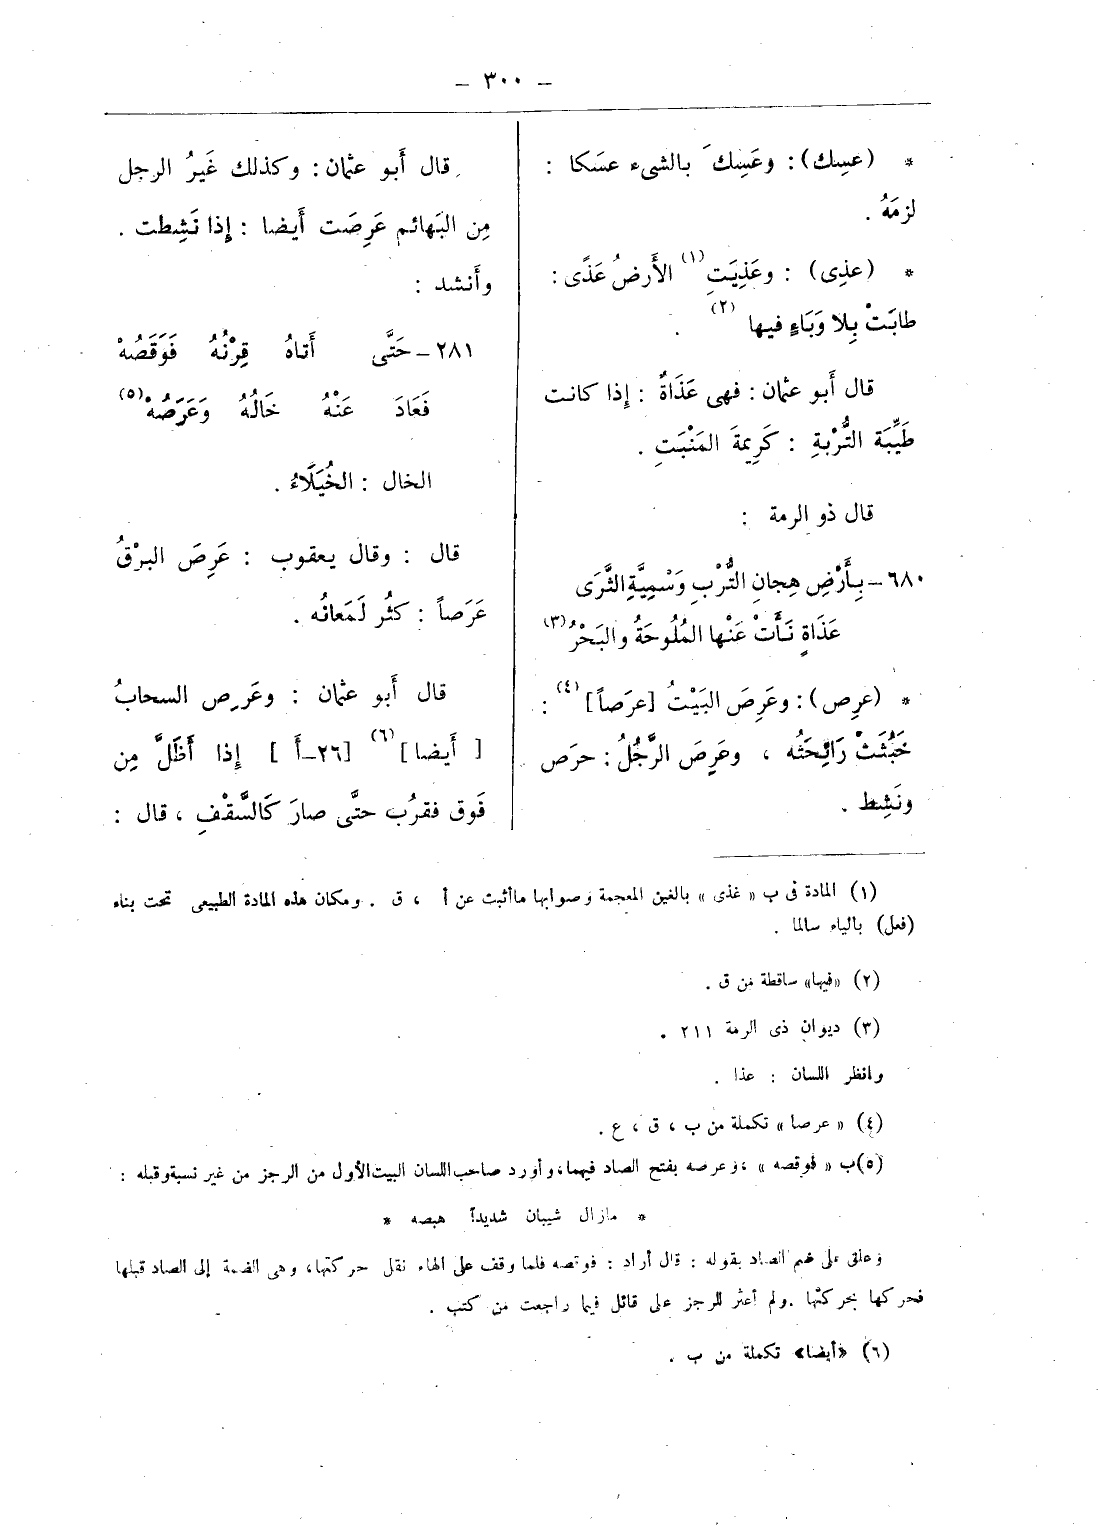 – ٣٠٠ –
* (عسِك): وعَسِكَ بالشىء عسَكا :
لزمَهُ .
* (عذِى) : وعَذِيَتِ (١) الأَرضُ عَذًى :
طابَتْ بِلا وَبَاءٍ فيها (٢) .
قال أَبو عثمان : فهى عَذَاةٌ : إذا كانت
طَيِّبَة التُّرْبةِ : كَرِيمةَ المَنْبَتِ .
قال ذو الرمة :
٦٨٠ – بِأَرْضٍ هِجانِ التُّرْبِ وَسْمِيَّةِ الثَّرَى
عَذَاةٍ نَأَتْ عَنْها المُلُوحَةُ والبَحْرُ (٣)
* (عرِص) : وعَرِصَ البَيْتُ [عرَصاً] (٤) :
خَبُثَتْ رَائِحَتُه ، وعَرِصَ الرَّجُلُ : حرَص
ونَشِط .
قال أَبو عثمان : وكذلك غَيرُ الرجل
مِن البَهائم عَرِصَت أَيضا : إِذا نَشِطت .
وأَنشد :
٢٨١ – حَتَّى أَتاهُ قِرْنُهُ فَوَقَصُهْ
فَعَادَ عَنْهُ خَالُهُ وَعَرَصُهْ (٥)
الخال : الخُيَلَاءُ .
قال : وقال يعقوب : عَرِصَ البرْقُ
عَرَصاً : كثُر لَمَعانُه .
قال أَبو عثمان : وعَرِص السحابُ
[ أَيضا] (٦) [٢٦–أَ ] إِذا أَظَلَّ مِن
فَوق فقرُب حتَّى صارَ كَالسَّقْفِ ، قال :
(١) المادة فى ب « غذى » بالغين المعجمة وصوابها ماأثبت عن أ ، ق . ومكان هذه المادة الطبيعى تحت بناء
(فعل) بالياء سالما .
(٢) «فيها» ساقطة من ق .
(٣) ديوان ذى الرمة ٢١١ .
وانظر اللسان : عذا .
(٤) « عرصا » تكملة من ب ، ق ، ع .
(٥) ب « فوقصه » ، وعرصه بفتح الصاد فيهما، وأورد صاحب اللسان البيت الأول من الرجز من غير نسبة وقبله :
* مازال شيبان شديداً هبصه *
وعلق على ضم الصاد بقوله : قال أراد : فوقصه فلما وقف على الهاء نقل حركتها، وهى الضمة إلى الصاد قبلها
فحركها بحركتها . ولم أعثر للرجز على قائل فيما راجعت من كتب .
(٦) «أيضا» تكملة من ب .